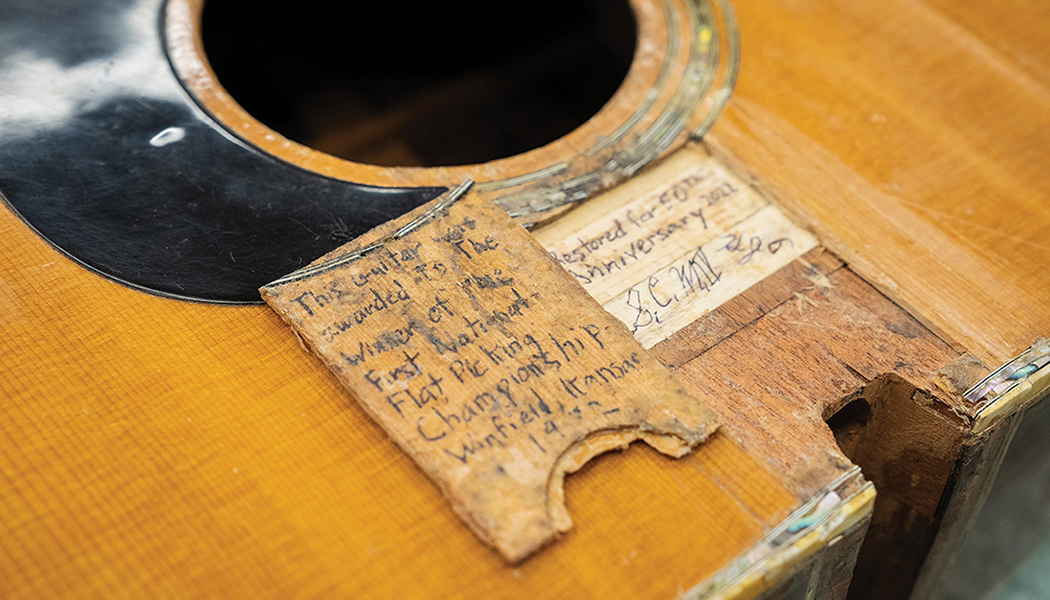 This guitar was
awarded to The
winner of the
First National
Flat Picking
Championship.
Winfield Kansas
1972
Restored for 50th
Anniversary 2022